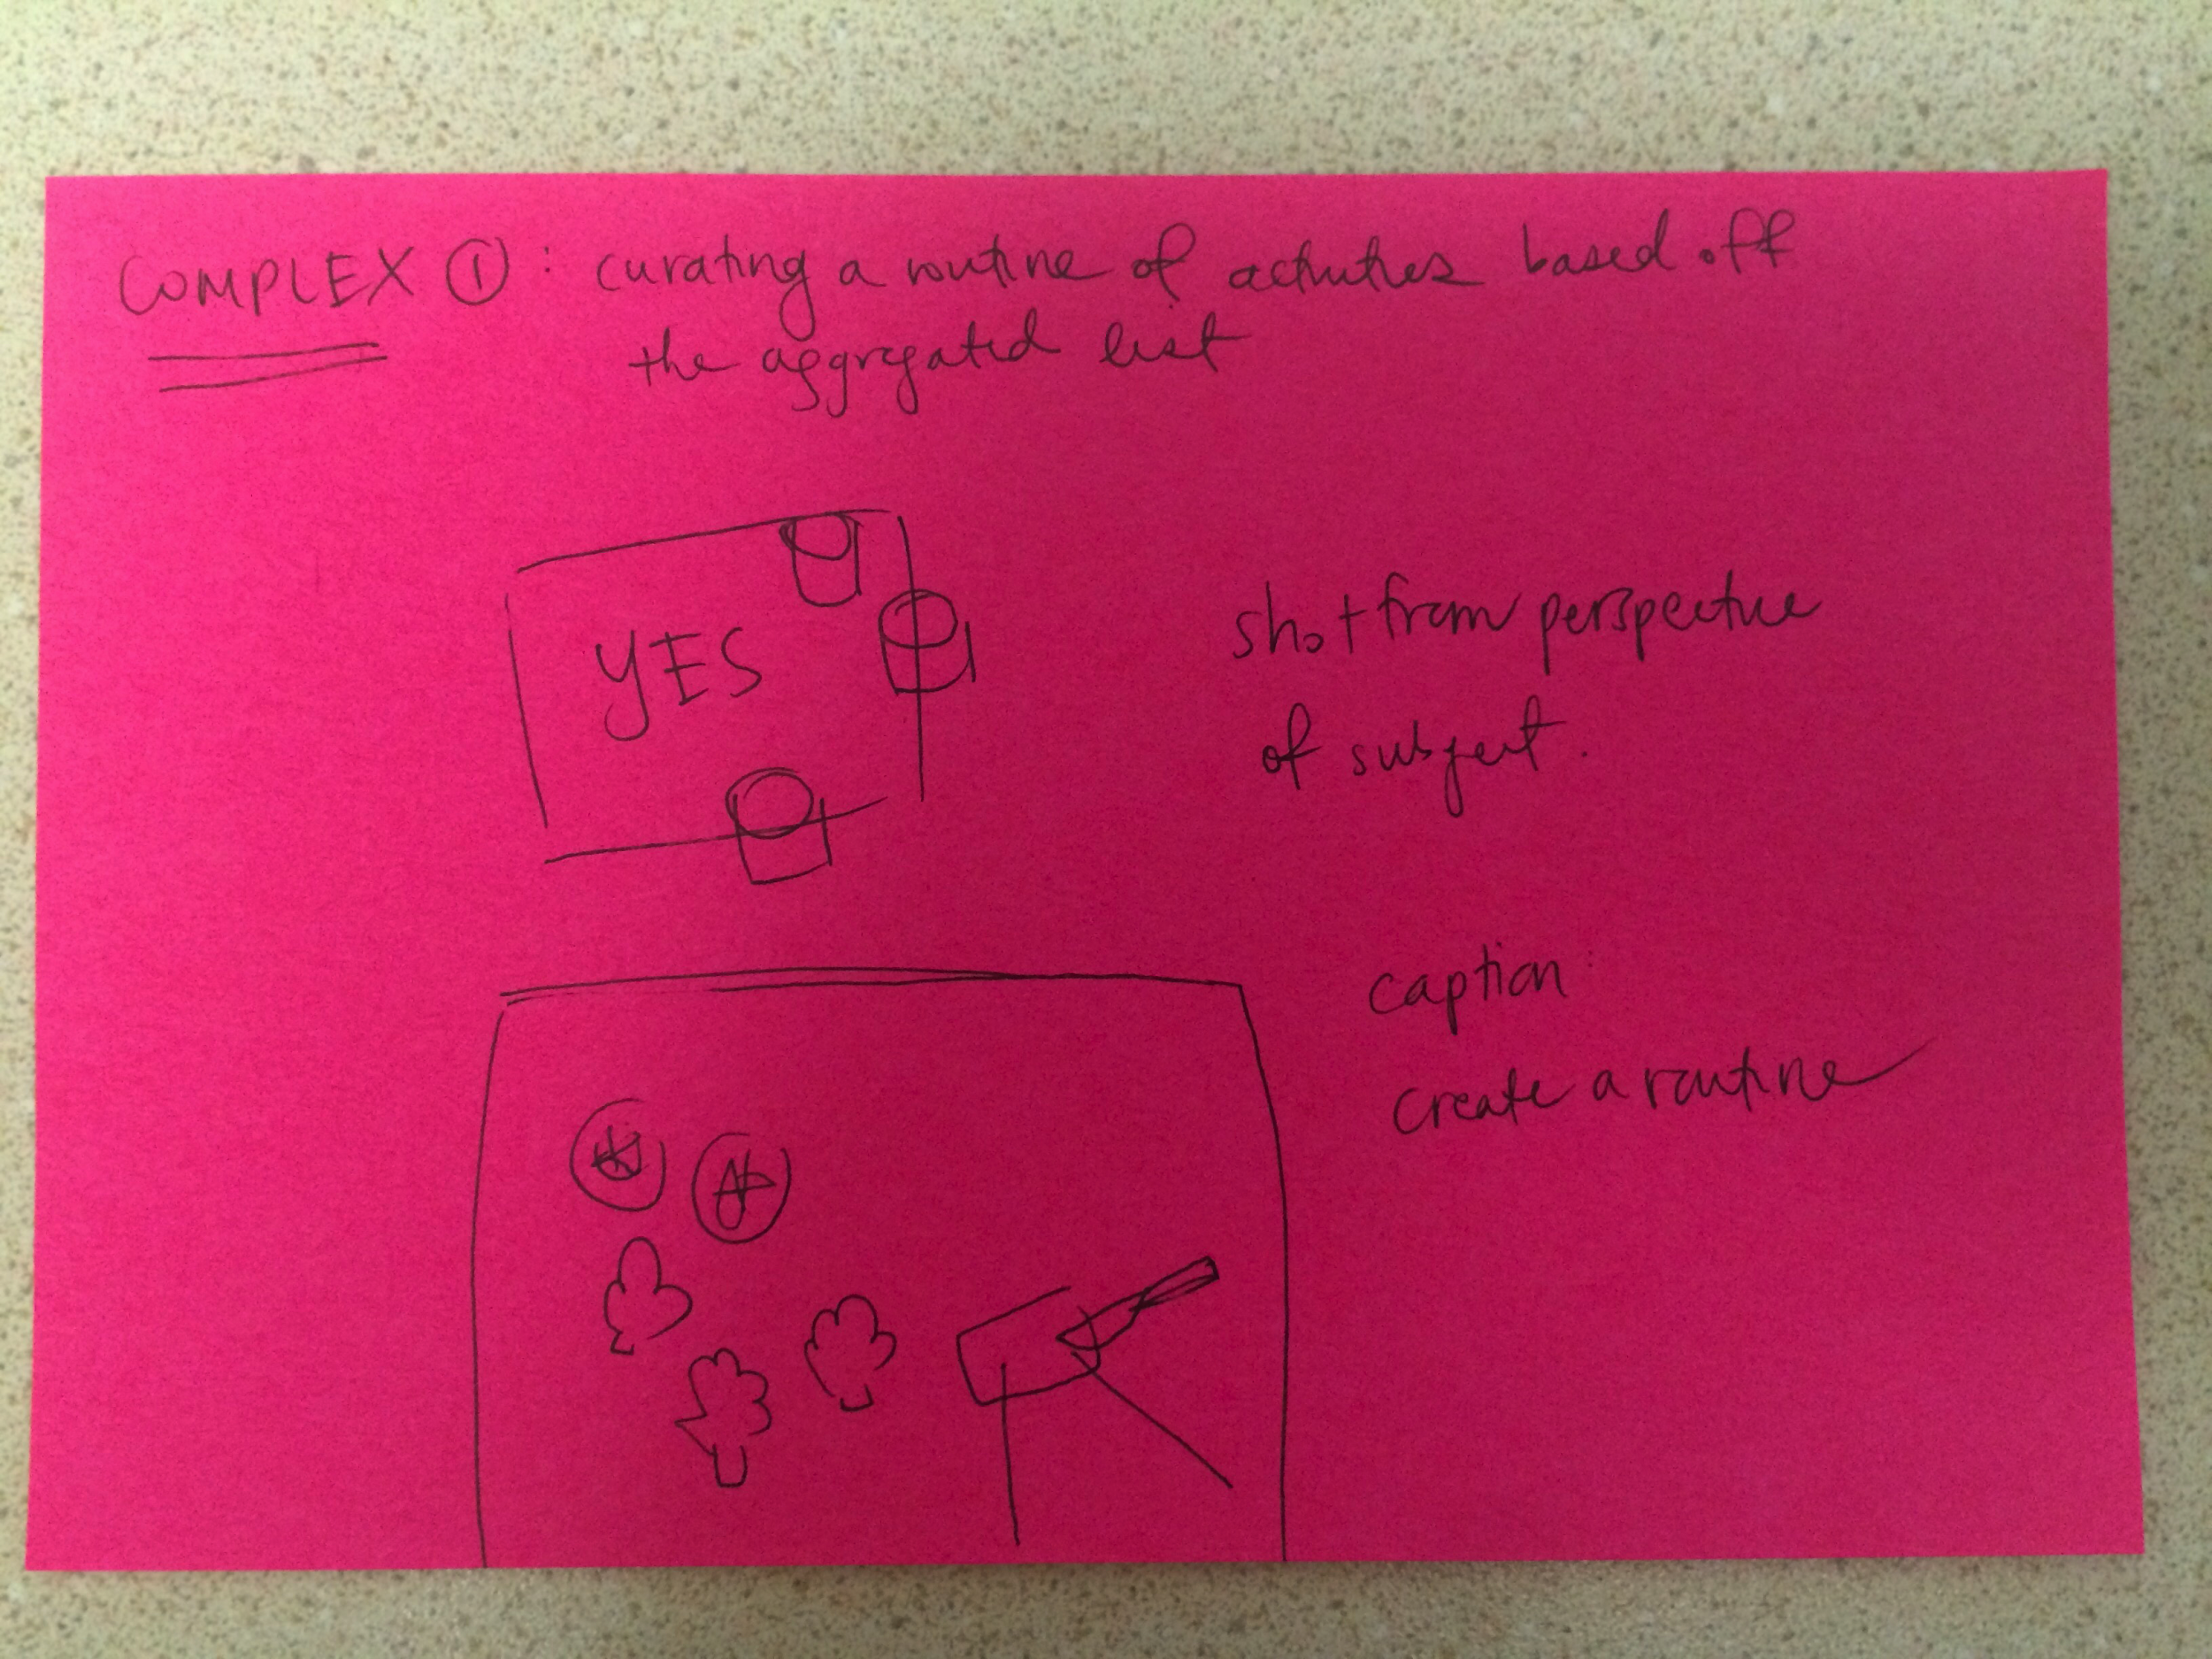 COMPLEX ①: curating a routine of activities based off
the aggregated list
YES
shot from perspective
of subject.
caption:
create a routine